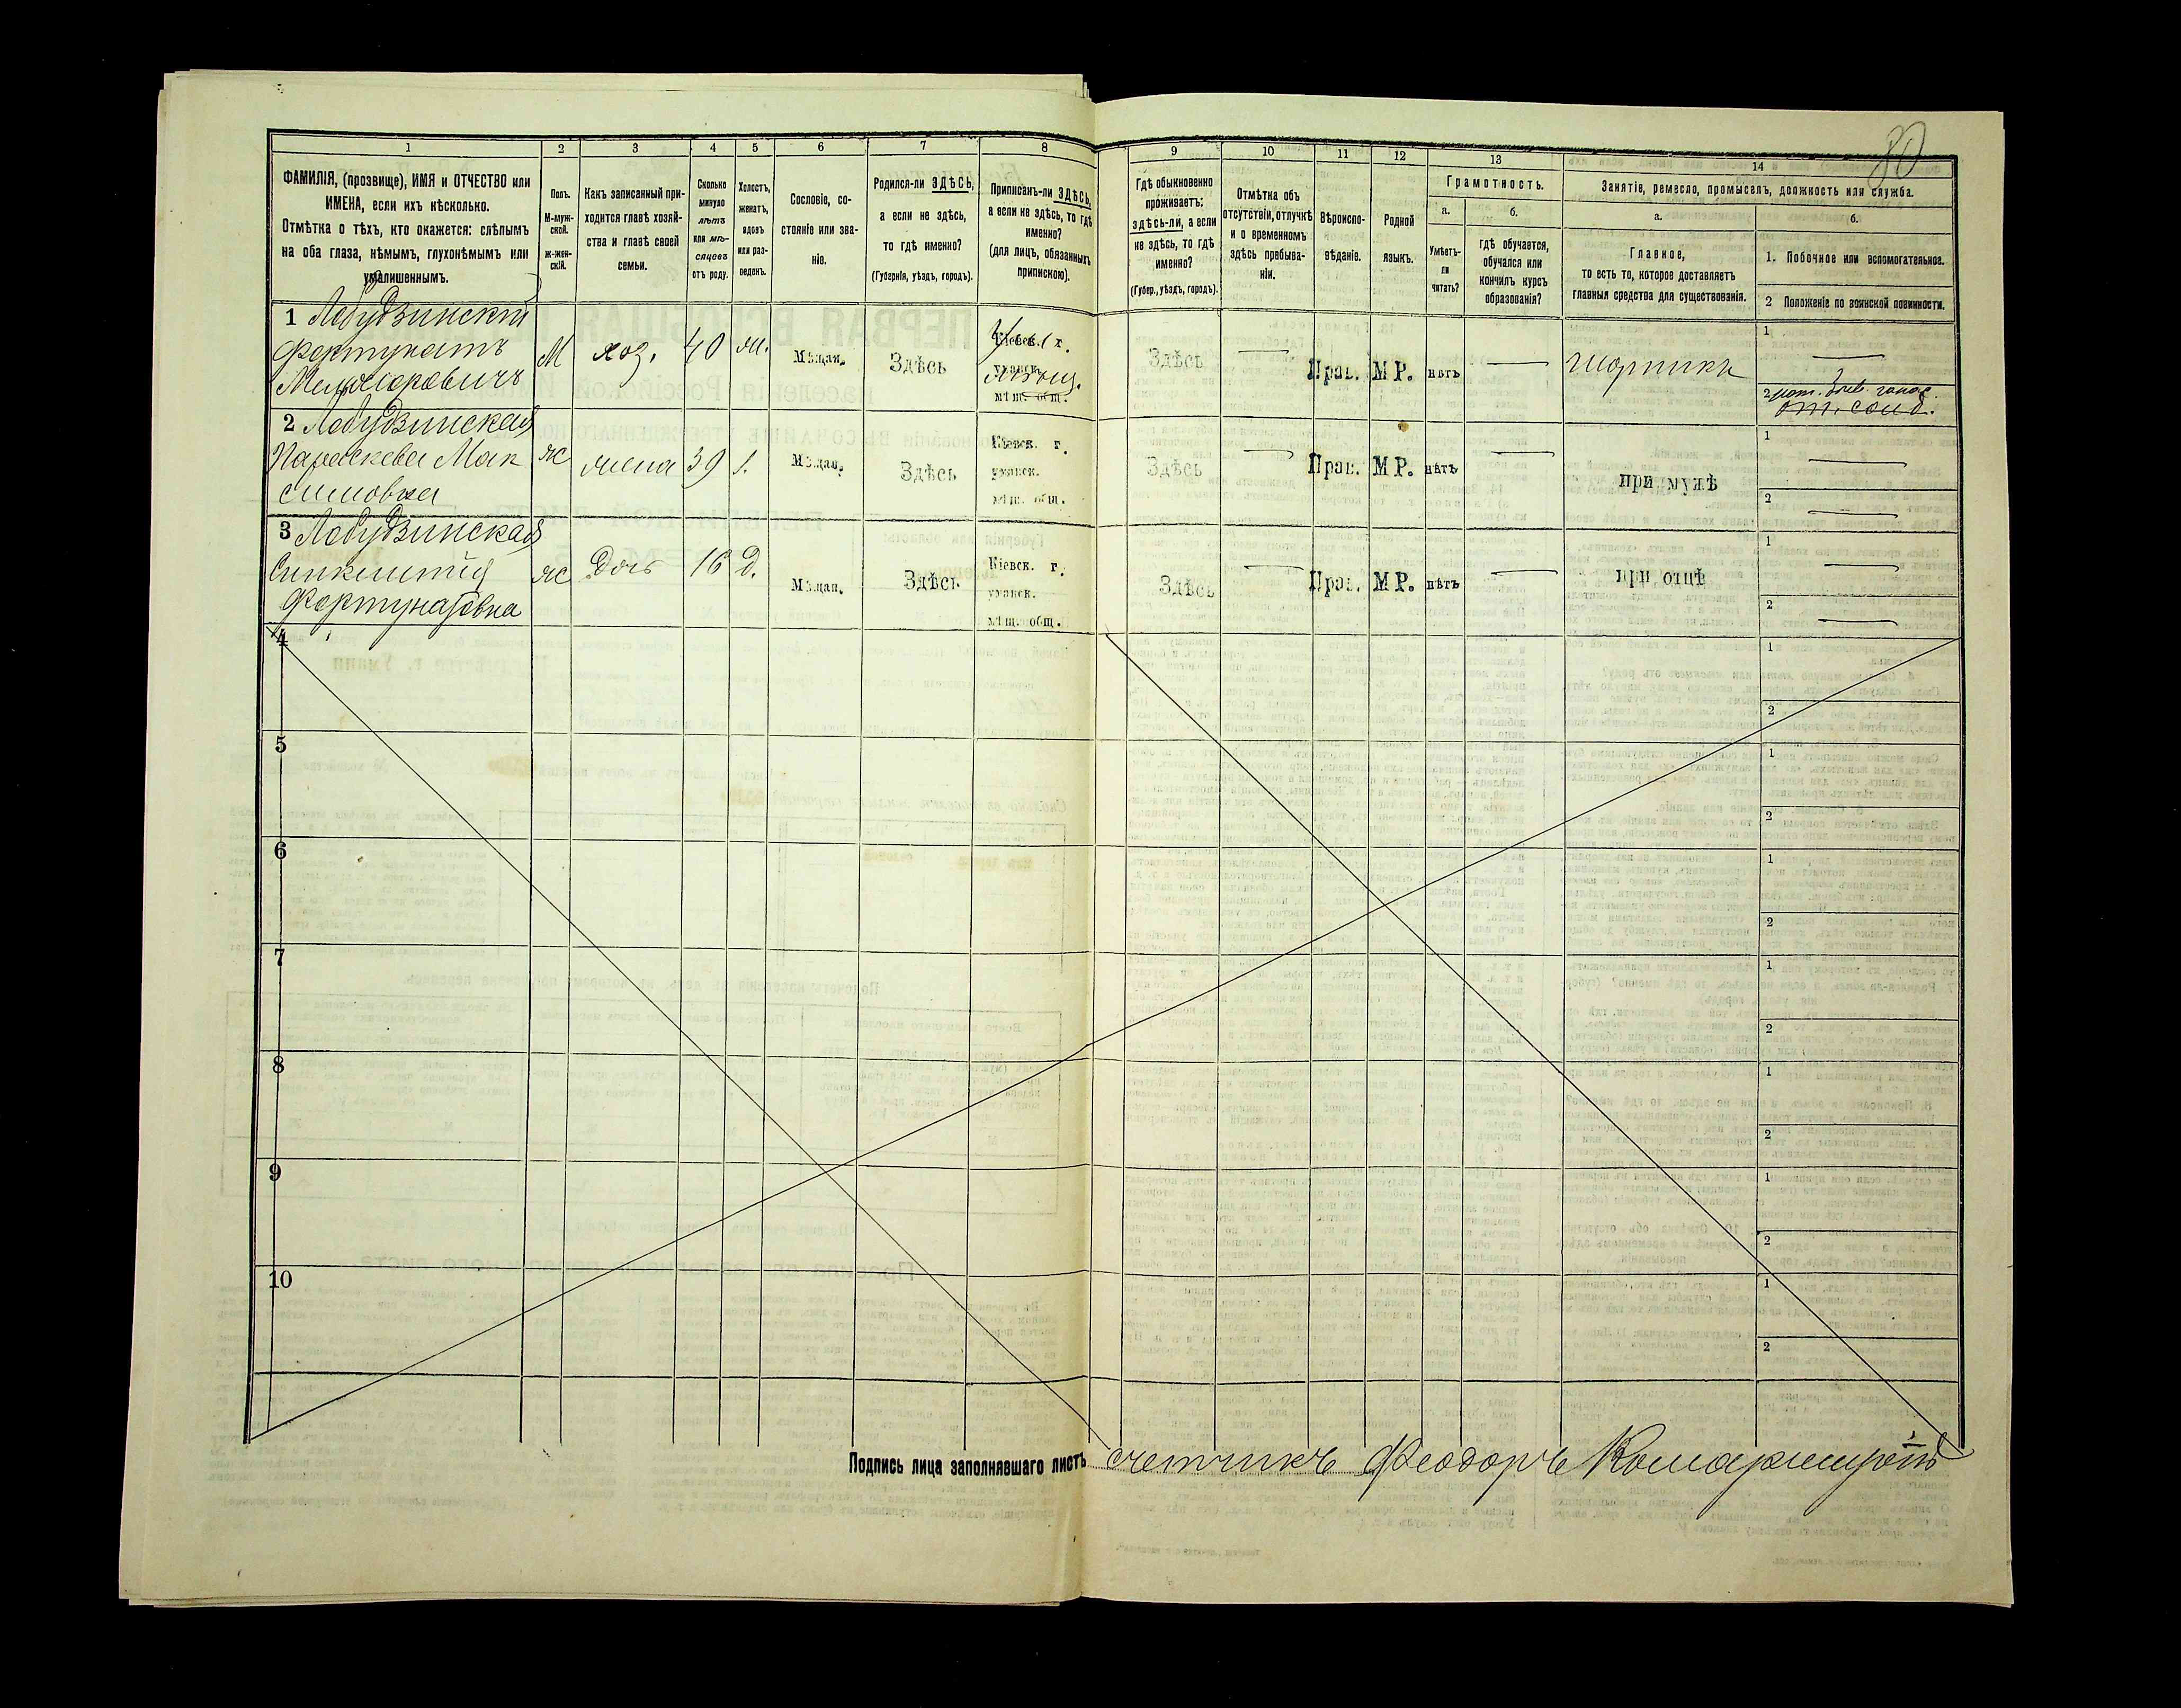 80
1 2 3 4 5 6 7 8 9 10 11 12 13 14
ФАМИЛІЯ, (прозвище), ИМЯ и ОТЧЕСТВО или
ИМЕНА, если ихъ нѣсколько.
Отмѣтка о тѣхъ, кто окажется: слѣпымъ
на оба глаза, нѣмымъ, глухонѣмымъ или
умалишеннымъ.
Полъ.
М-муж-
ской.
Ж-жен-
скій.
Какъ записанный при-
ходится главѣ хозяй-
ства и главѣ своей
семьи.
Сколько
минуло
лѣтъ
или мѣ-
сяцевъ
отъ роду.
Холостъ,
женатъ,
вдовъ
или раз-
веденъ.
Сословіе, со-
стояніе или зва-
ніе.
Родился-ли ЗДѢСЬ,
а если не здѣсь,
то гдѣ именно?
(Губернія, уѣздъ, городъ).
Приписанъ-ли ЗДѢСЬ,
а если не здѣсь, то гдѣ
именно?
(для лицъ, обязанныхъ
припискою).
Гдѣ обыкновенно
проживаетъ:
здѣсь-ли, а если
не здѣсь, то гдѣ
именно?
(Губер., уѣздъ, городъ).
Отмѣтка объ
отсутствіи, отлучкѣ
и о временномъ
здѣсь пребыва-
ніи.
Вѣроиспо-
вѣданіе.
Родной
языкъ.
Грамотность.
а.
Умѣетъ-
ли
читать?
б.
гдѣ обучается,
обучался или
кончилъ курсъ
образованія?
Занятіе, ремесло, промыселъ, должность или служба.
а.
Главное,
то есть то, которое доставляетъ
главныя средства для существованія.
б.
1. Побочное или вспомогательное.
2 Положеніе по воинской повинности.
1 Лабудзинскій
Фортунатъ
М хоз. 40 ж. Мѣщан. Здѣсь
Кіевск. г.
уманск.
мѣщ. общ.
Здѣсь Прав. МР. нѣтъ шорникъ
1
2
2 Лабудзинская
Параскева Мак
симовна
ж жена 39 Мѣщан. Здѣсь
Кіевск. г.
уманск.
мѣщ. общ.
Здѣсь Прав. МР. нѣтъ при мужѣ
1
2
3 Лабудзинская
Фортунатовна
ж Дочь 16 д. Мѣщан. Здѣсь
Кіевск. г.
уманск.
мѣщ. общ.
Здѣсь Прав. МР. нѣтъ при отцѣ
1
2
4
1
2
5
1
2
6
1
2
7
1
2
8
1
2
9
1
2
10
1
2
Подпись лица заполнявшаго листъ счетчикъ Феодоръ